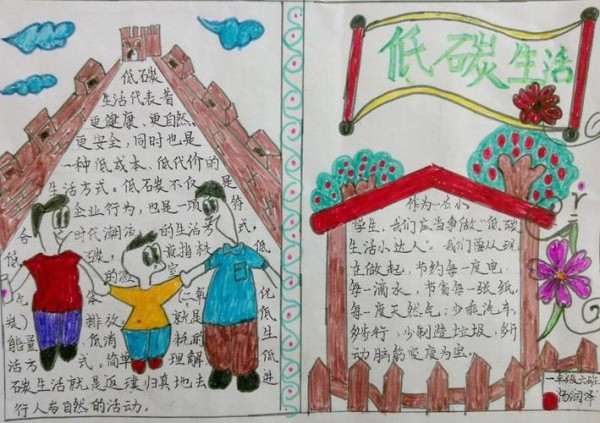 低碳
生活代表着
更健康、更自然、
更安全,同时也是
一种低成本、低代价的
生活方式。低碳不仅是
企业行为,也是一项符
合时代潮流的生活方式。
低碳 是指 低
的 室
气体 (二 氧
碳) 排放 就是 低
能量 低消耗的生
活方式。简单理解低
碳生活就是返璞归真地去进
行人与自然的活动。
低碳生活
作为一名小
学生,我们应当争做“低碳
生活小达人”。我们要从现
在做起,节约每一度电,
每一滴水,节省每一张纸,
每一度天然气;少乘汽车,
多步行,少制造垃圾,多
动脑筋变废为宝。
一年级六班